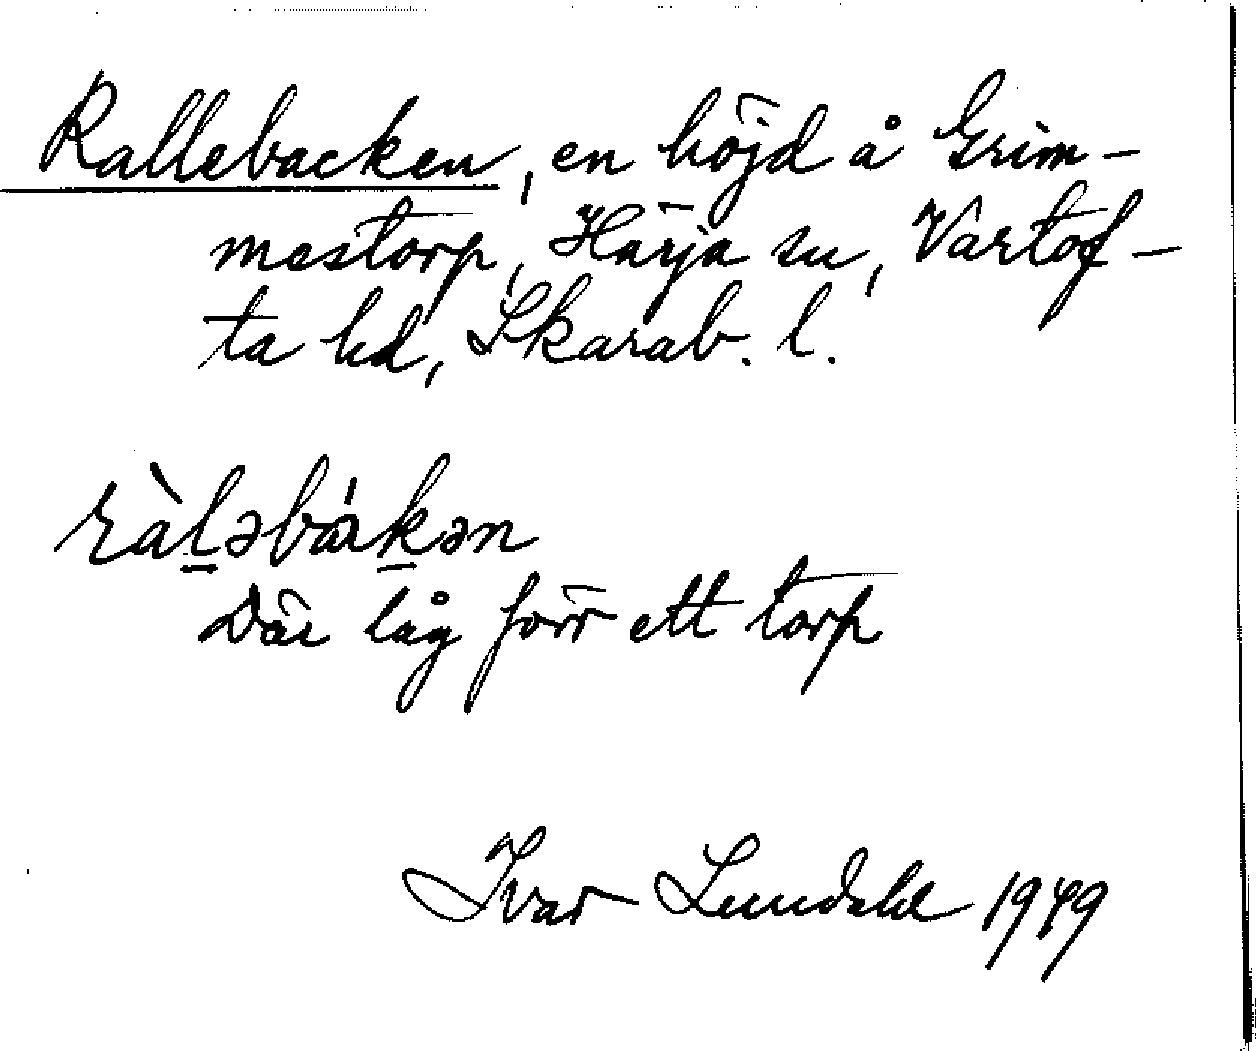 Rallebacken, en höjd å Grim-
mestorp, Härja sn, Vartof-
ta hd, Skarab. l.
ràl̲əbákən
Där låg förr ett torp
Ivar Lundahl 1949